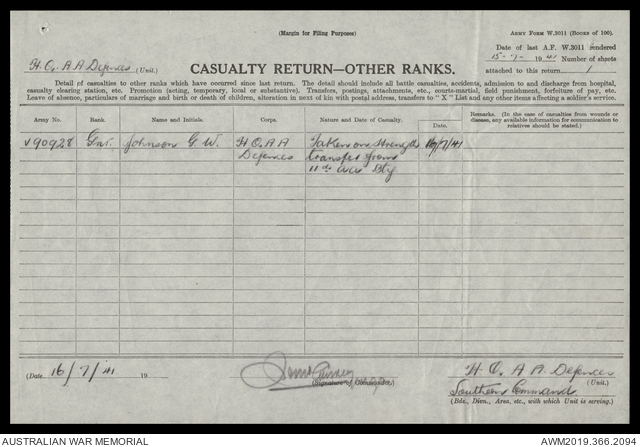 (Margin for Filing Purposes)
ARMY FORM W.3011 (BOOKS OF 100).
Date of last A.F. W.3011 rendered
15-7-1941 Number of sheets
attached to this return 1
H.Q. A A Defences (Unit.)
CASUALTY RETURN—OTHER RANKS.
Detail of casualties to other ranks which have occurred since last return. The detail should include all battle casualties, accidents, admission to and discharge from hospital,
casualty clearing station, etc. Promotion (acting, temporary, local or substantive). Transfers, postings, attachments, etc., courts-martial, field punishment, forfeiture of pay, etc.
Leave of absence, particulars of marriage and birth or death of children, alteration in next of kin with postal address, transfers to "X" List and any other items affecting a soldier's service.
Army No. Rank. Name and Initials. Corps. Nature and Date of Casualty. Date. Remarks. (In the case of casualties from wounds or
disease, any available information for communication to
relatives should be stated.)
V90928 Gnr. Johnson G. W. H Q A A Taken on Strength 16/7/41
Defences transfer from
Bty
(Date 16/7/41 19
(Signature of Commander.)
H. Q. A A Defences
(Unit.)
Southern Command
(Bde., Divn., Area, etc., with which Unit is serving.)
AUSTRALIAN WAR MEMORIAL
AWM2019.366.2094